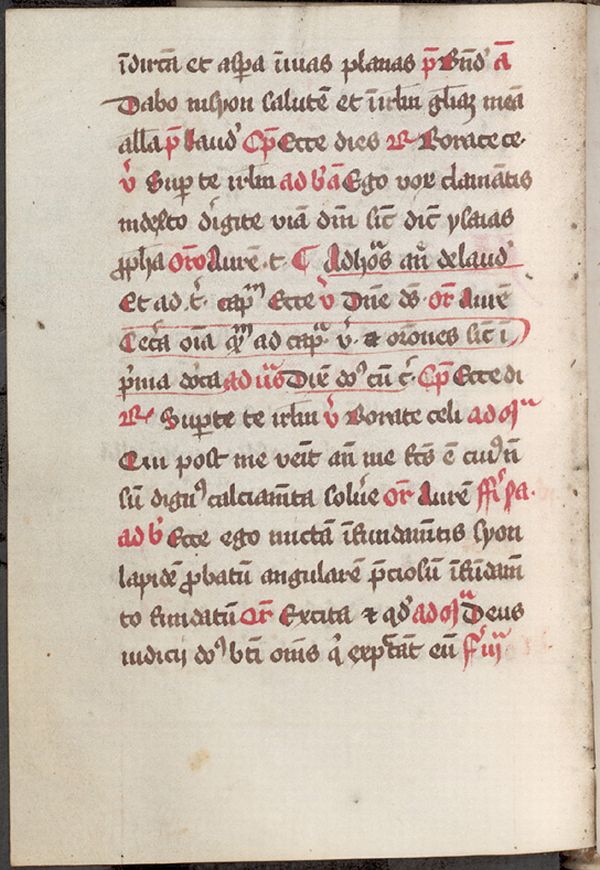 īdirc̄ta et asp̄a ī uias planas p̄s Bn̄d' ā
Dabo in syon salutē et ī irl̄m gl̄iaȝ meā
alla p̄s Laud' Cp̄ Ecce dies R Rorate ce·
v̄ Sup te irl̄m ad b̄ ā Ego vox clamātis
in des̄to dirigite viā dn̄i sic̄ dic̄ ysaias
ꝓpha or̄o Aurē· t· C Ad ho͛s an̄ de laud'
Et ad t̄· cap̄m Ecce v̄ Dn̄e ds̄· or̄ Aurē
Cet̄a oīa qm̄ ad cap̄· v̄· et or̄ones sic̄ ī
p̄ma dn̄ca ad ūs Dix̄ do' cū c̄· Cp̄ Ecce di
R Sup te te irl̄m v̄ Rorate celi ad m̄
Qui post me venit an̄ me fc̄s ē cui' n̄
sū dign' calciam̄ta solu̅e or̄ Aurē ff' sa·
ad b̄ Ecce ego mictā ī fundam̄tis syon
lapidē ꝓbatū angularē p̄ciosū ī fūdam̄
to fundatū Or̄ Excita et qd' ad m̄ Deus
iudicij do' bt̄i om̄s q̄ expc̄tāt eū f' iij